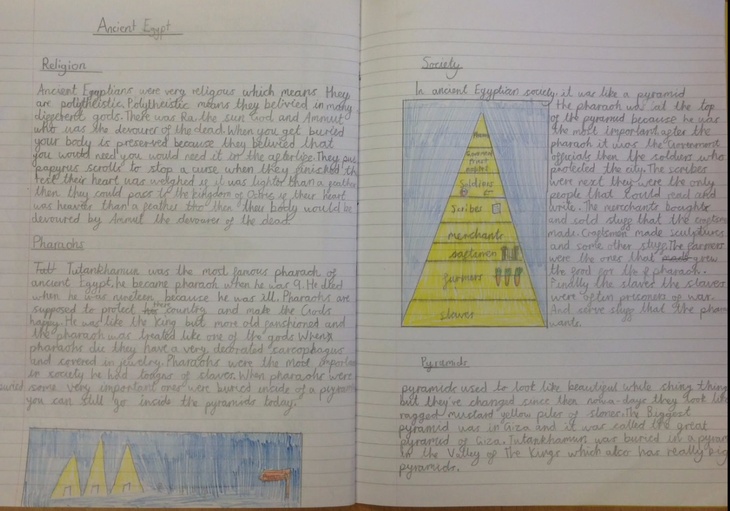 Ancient Egypt
Religion
Ancient Egyptians were very religous which means they
are polytheistic. Polytheistic means they belivied in many
different gods. There was Ra the sun God and Ammut
who was the devourer of the dead. When you get buried
your body is preserved because they belived that
you would need you would need it in the afterlife. They put
papyrus scrolls to stop a curse when they finished the
test their heart was weighed if it was lighter than a feather
then they could pass to the kingdom of if their heart
was heavier than a feather then their body would be
devoured by Ammut the devourer of the dead
Pharaohs
Tutankhamun was the most famous pharaoh of
ancient Egypt, he became pharaoh when he was 9. He died
when he was nineteen because he was ill. Pharaohs are
supposed to protect their country and make the Gods
happy. He was like the King but more old fanshioned and
the pharaoh was treated like one of the gods When
pharaohs die they have a very decorated sarcophagus
and covered in jewelry. Pharaohs were the most important
in society he had of slaves. When pharaohs were
buried some very important ones were buried inside of a pyramid
you can still go inside the pyramids today.
Society
In ancient Egyptian society it was like a pyramid
the pharaoh was at the top
of the pyramid because he was
the most important after the
pharaoh it was the Government
officials then the soldiers who
protected the city. The scribes
were next they were the only
people that could read and
write. The merchants bought
and sold stuff that the craftsmen
made. Craftsmen made sculptures
and some other stuff. The farmers
were the ones that grew
the food for the pharaoh.
Finally the slaves the slaves
were often prisoners of war.
And serve stuff that the pharaoh
wants.
Soldiers
Scribes
merchants
farmers
Slaves
Pyramids
pyramids used to look like beautiful white shing things
but they're changed since then nowa-days they look like
ragged mustard yellow piles of stones. The Biggest
pyramid was in Giza and it was called the great
pyramid of Giza. Tutankhamun was buried in a pyramid
in the Valley of The Kings which also has really big
pyramids.